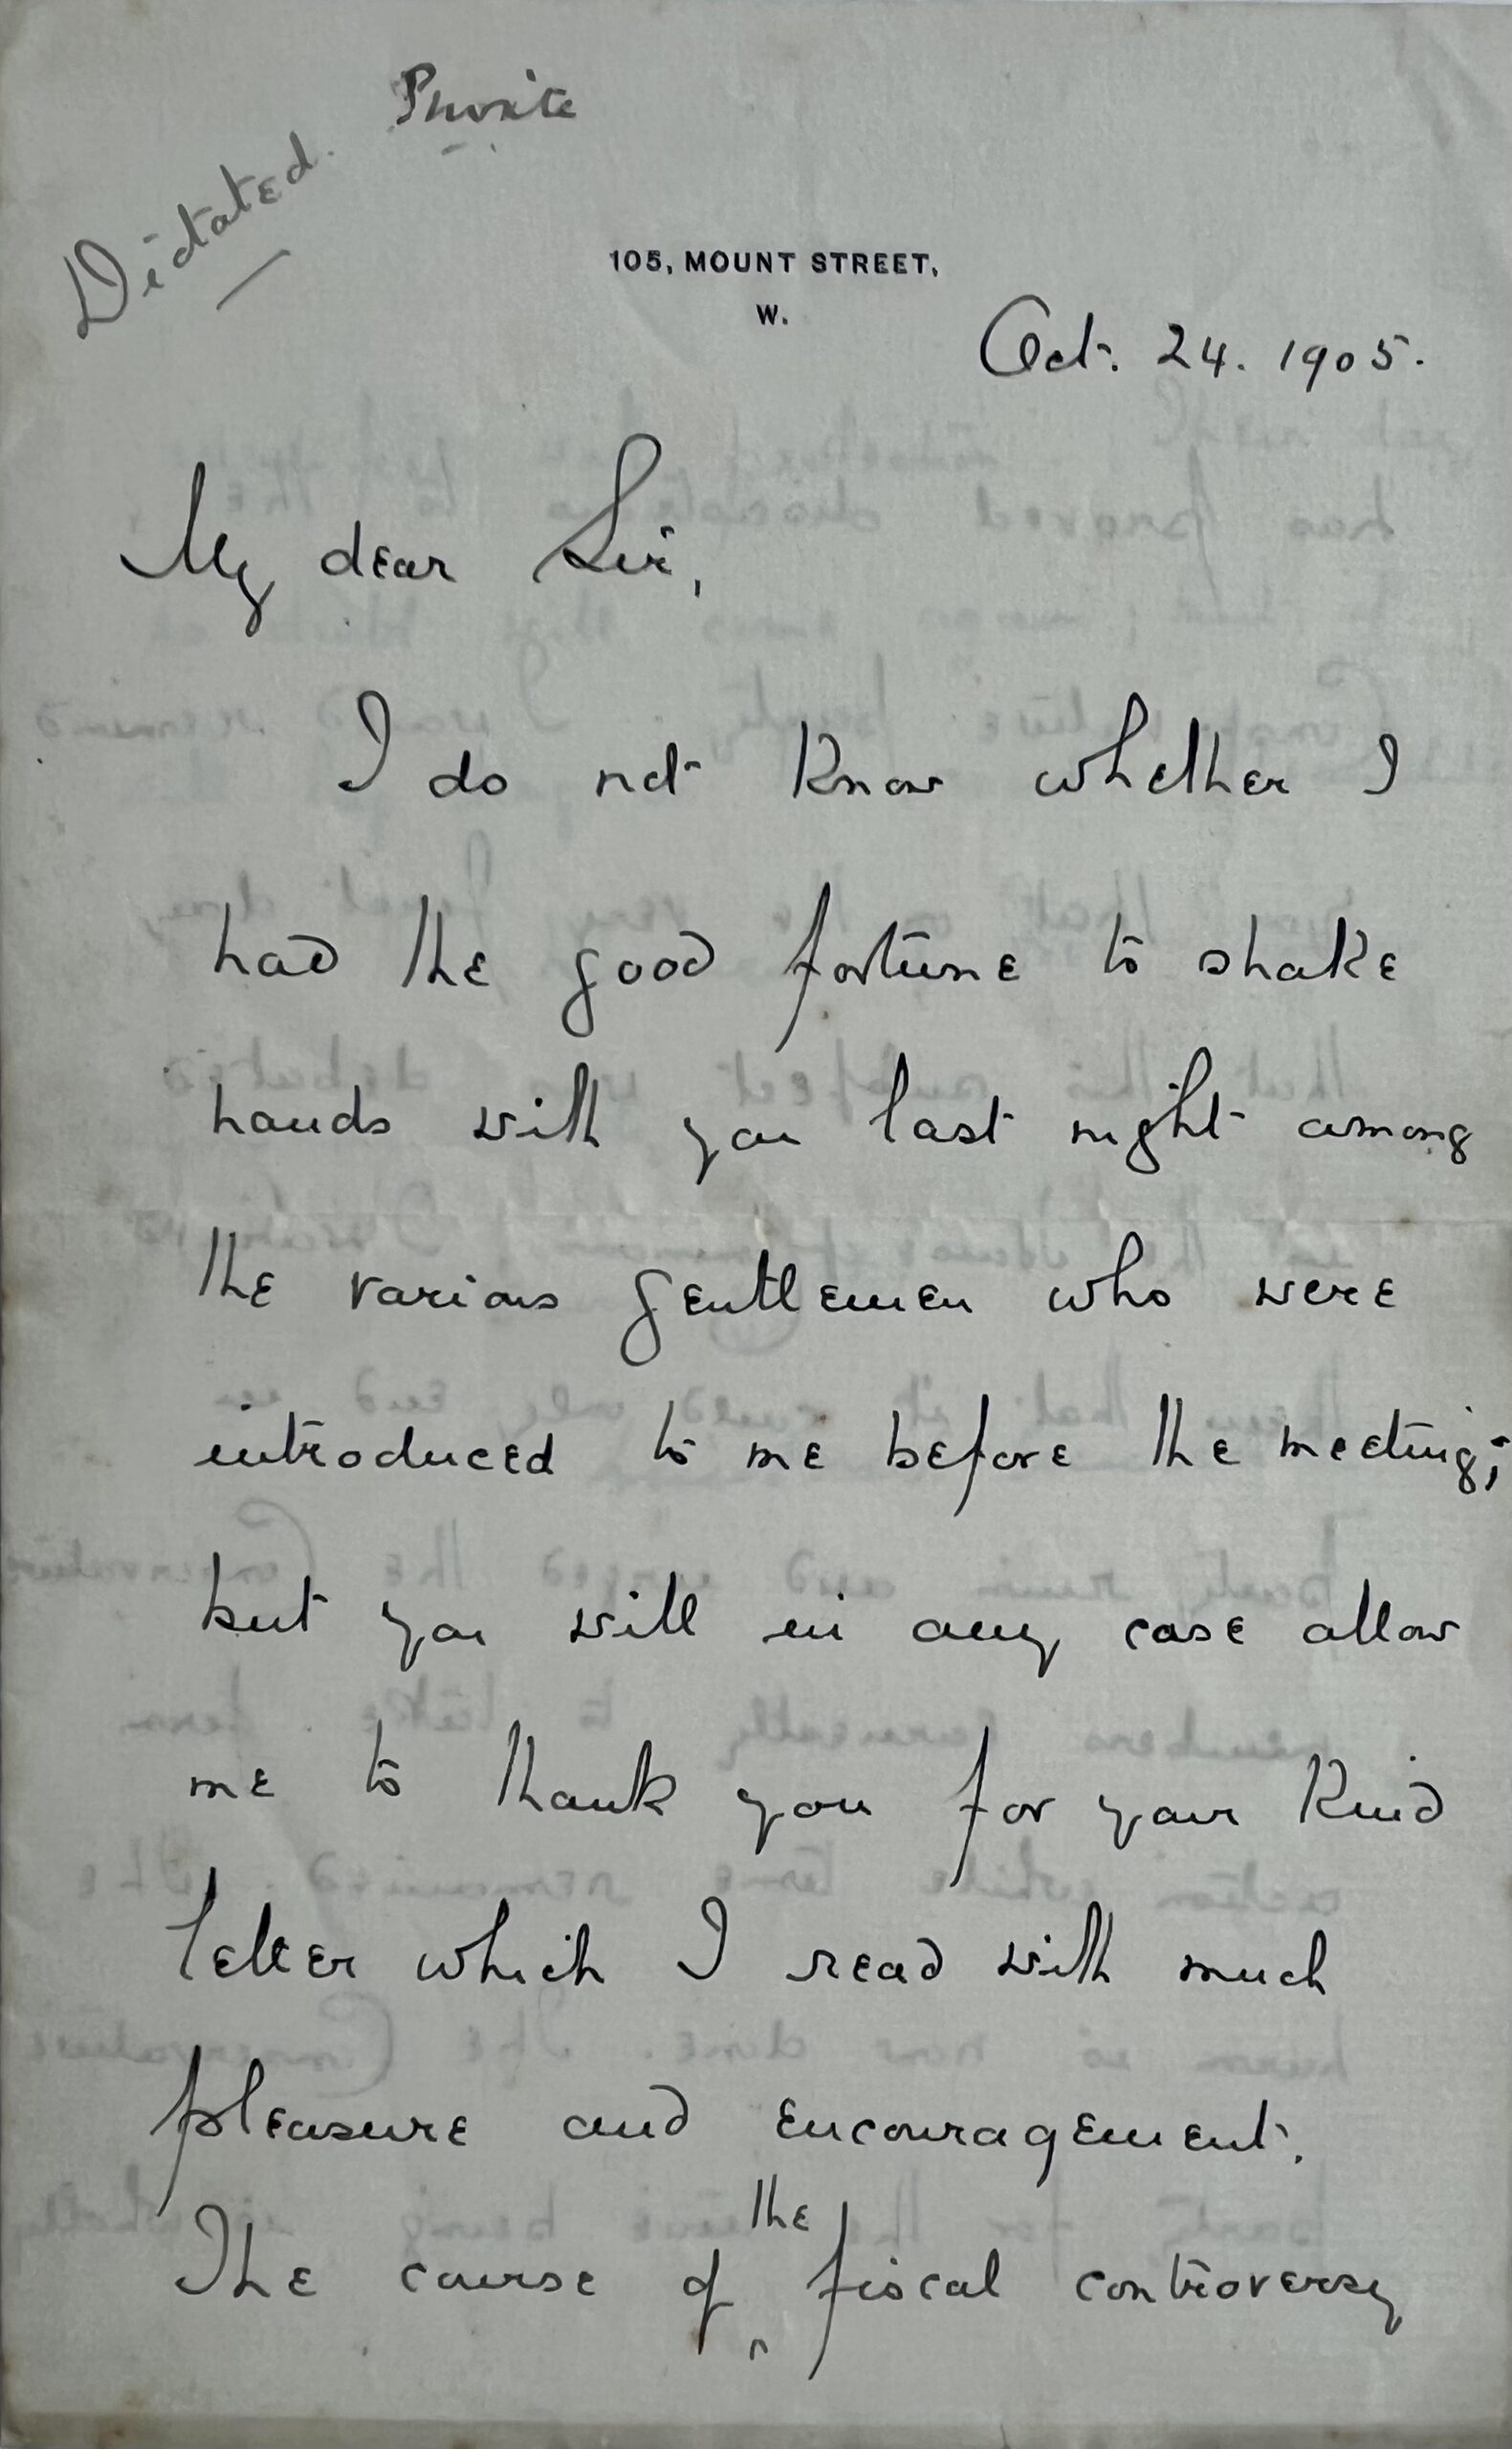 Private
Dictated.
105, MOUNT STREET,
W.
Oct. 24. 1905.
My dear Sir,
I do not know whether I
had the good fortune to shake
hands with you last night among
the various gentlemen who were
introduced to me before the meeting;
but you will in any case allow
me to thank you for your kind
letter which I read with much
pleasure and encouragement.
the
The course of ^ fiscal controversy